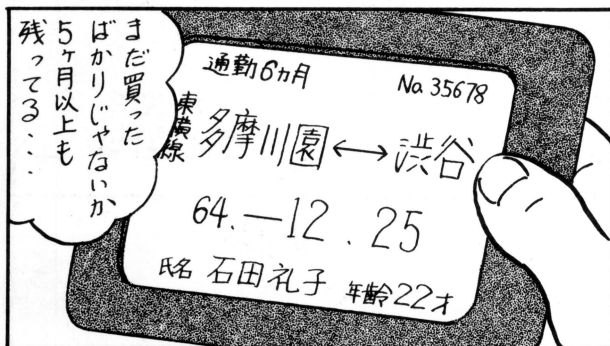 まだ買った
ばかりじゃないか
5ヶ月以上も
残ってる・・・
通勤6カ月 No. 35678
東横線 多摩川園↔渋谷
64.—12.25
氏名 石田礼子 年齢22才